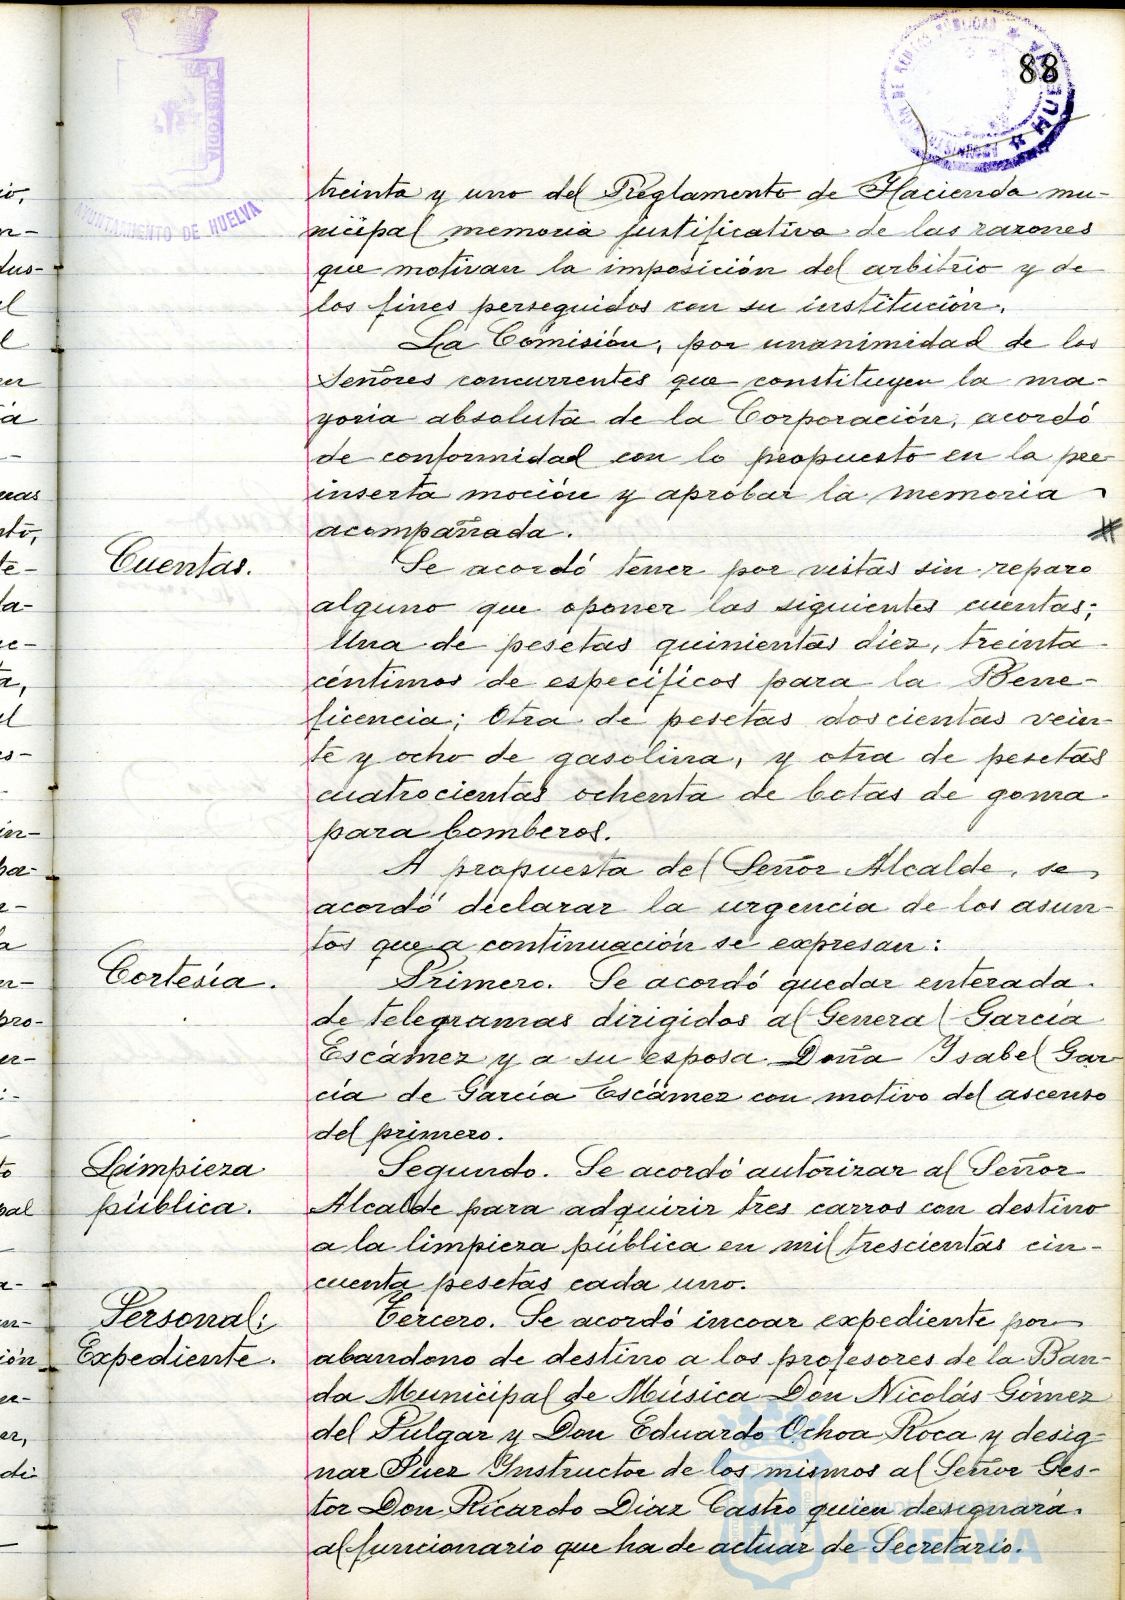 88
CUSTODIA
AYUNTAMIENTO DE HUELVA
HUELVA
treinta y uno del Reglamento de Hacienda mu-
nicipal memoria justificativa de las razones
que motivan la imposición del arbitrio y de
los fines perseguidos con su institución.
La Comisión, por unanimidad de los
Señores concurrentes que constituyen la ma-
yoria absoluta de la Corporación, acordó
de conformidad con lo propuesto en la pre
inserta moción y aprobar la memoria
acompañada.
Cuentas.
Se acordó tener por vistas sin reparo
alguno que oponer las siguientes cuentas;
Una de pesetas quinientas diez, treinta
céntimos de especificos para la Bene-
ficencia; Otra de pesetas doscientas vein-
te y ocho de gasolina, y otra de pesetas
cuatrocientas ochenta de botas de goma
para bomberos.
A propuesta del Señor Alcalde, se
acordó declarar la urgencia de los asun-
tos que a continuación se expresan:
Cortesía.
Primero. Se acordó quedar enterada
de telegramas dirigidos al General García
Escámez y a su esposa Doña Isabel Gar
cía de García Escámez con motivo del ascenso
del primero.
Limpieza
pública.
Segundo. Se acordó autorizar al Señor
Alcalde para adquirir tres carros con destino
a la limpieza pública en mil trescientas cin-
cuenta pesetas cada uno.
Personal:
Expediente.
Tercero. Se acordó incoar expediente por
abandono de destino a los profesores de la Ban-
da Municipal de Música Don Nicolás Gómez
del Pulgar y Don Eduardo Ochoa Roca y desig-
nar Juez Instructor de los mismos al Señor Ges-
tor Don Ricardo Díaz Castro quien designará
al funcionario que ha de actuar de Secretario.
HUELVA